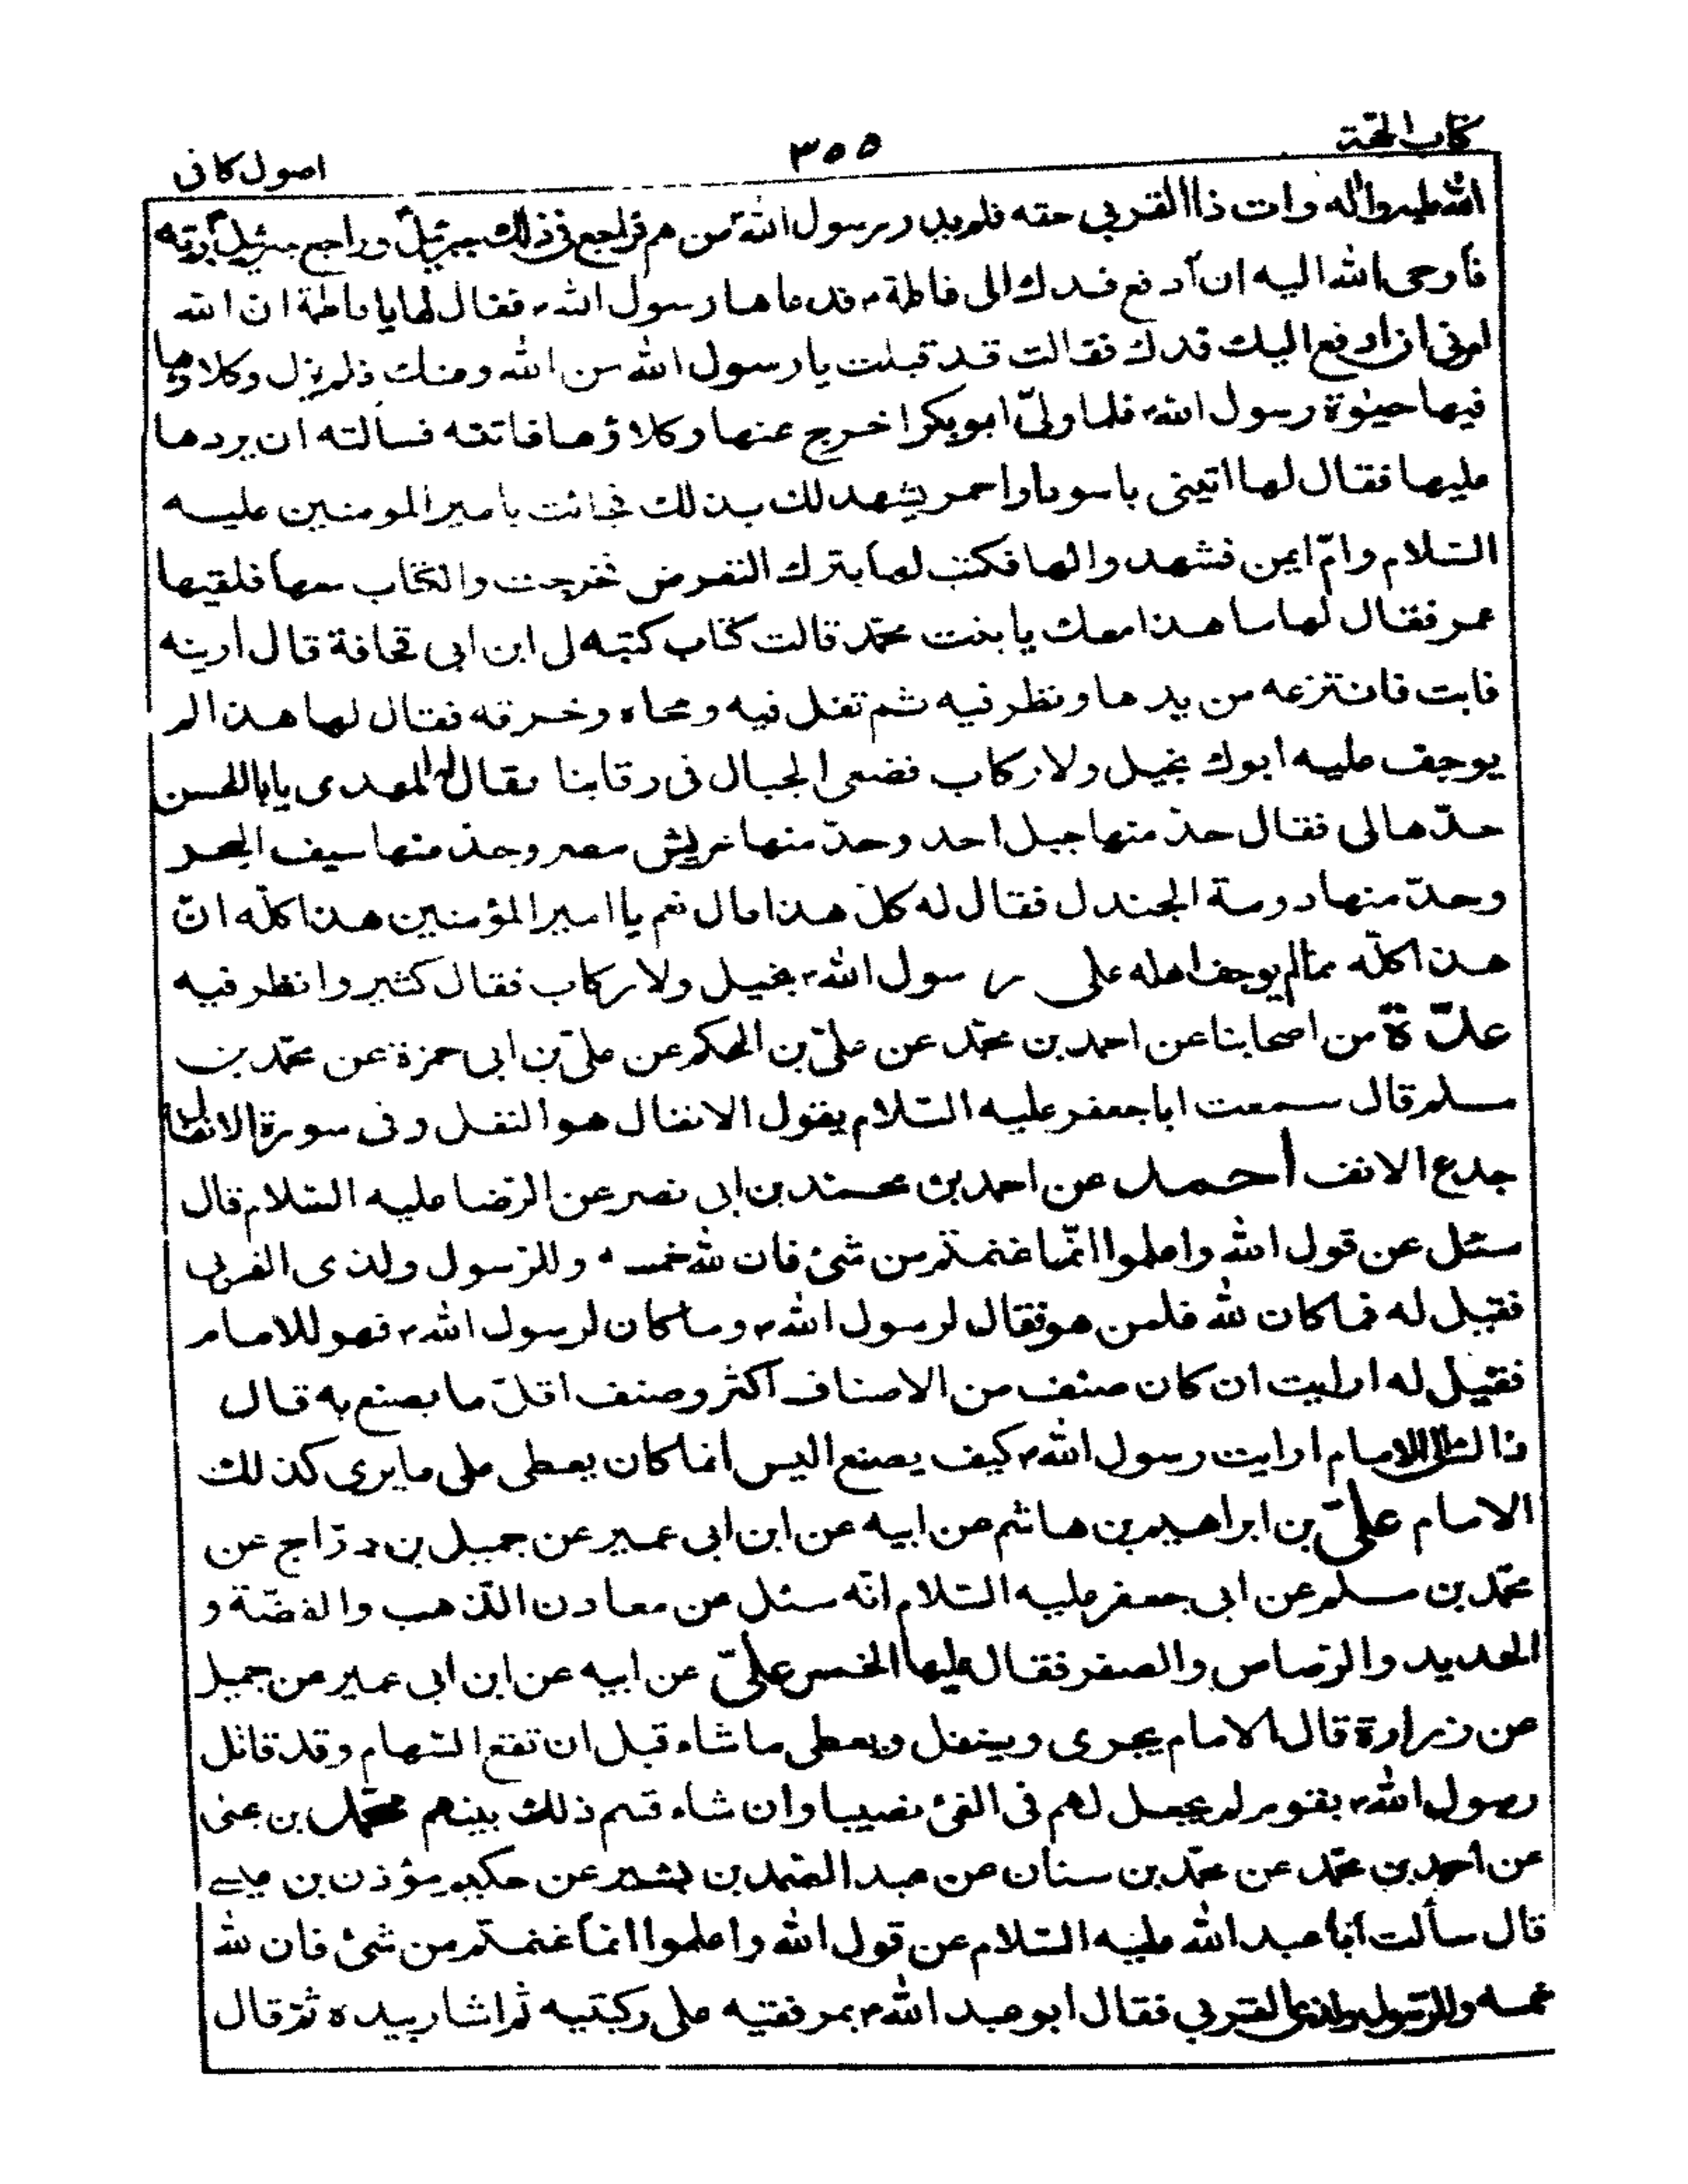 كتاب الحجة
٣٥٥
اصول كافى
الله عليه واله وات ذا القربى حقه فلم يدر رسول الله ص من هم فراجع فى ذلك جبرئيل وراجع جبرئيل ربّه
فأوحى الله اليه ان ادفع فدك الى فاطمة ع فدعاها رسول الله ص فقال لها يا فاطمة ان الله
امرنى ان ادفع اليك فدك فقالت قد قبلت يا رسول الله من الله ومنك فلم يزل وكلاؤها
فيها حيوة رسول الله ص فلما ولىّ ابوبكر اخرج عنها وكلاؤها فاتته فسألته ان يردها
عليها فقال لها ائتينى باسود او احمر يشهد لك بذلك فجائت بامير المومنين عليه
السّلام وامّ ايمن فشهدوا لها فكتب لها بترك التعرض فخرجت والكتاب معها فلقيها
عمر فقال لها ما هذا معك يا بنت محمّد قالت كتاب كتبه لى ابن ابى قحافة قال ارينه
فابت فانتزعه من يدها ونظر فيه ثم تفل فيه ومحاه وخرقه فقال لها هذا لم
يوجف عليه ابوك بخيل ولا ركاب فضعى الجبال فى رقابنا فقال له المهدى يا ابا الحسن
حدّها لى فقال حدّ منها جبل احد وحدّ منها عريش مصر وحدّ منها سيف البحر
وحدّ منها دومة الجندل فقال له كلّ هذا قال نعم يا امير المؤمنين هذا كلّه انّ
هذا كلّه ممّا لم يوجف اهله على رسول الله ص بخيل ولا ركاب فقال كثير وانظر فيه
عدّة من اصحابنا عن احمد بن محمّد عن علىّ بن الحكم عن علىّ بن ابى حمزة عن محمّد بن
مسلم قال سمعت ابا جعفر عليه السّلام يقول الانفال هو النفل وفى سورة الانفال
جدع الانف أحمد عن احمد بن محمّد بن ابى نصر عن الرّضا عليه السّلام قال
سئل عن قول الله واعلموا انّما غنمتم من شئ فان لله خمسه وللرّسول ولذى القربى
فقيل له فما كان لله فلمن هو فقال لرسول الله ص وما كان لرسول الله ص فهو للامام
فقيل له ارايت ان كان صنف من الاصناف اكثر وصنف اقلّ ما يصنع به قال
ذاك الى الامام ارايت رسول الله ص كيف يصنع اليس انما كان يعطى على ما يرى كذلك
الامام علىّ بن ابراهيم بن هاشم عن ابيه عن ابن ابى عمير عن جميل بن درّاج عن
محمّد بن مسلم عن ابى جعفر عليه السّلام انّه سئل عن معادن الذّهب والفضّة و
الحديد والرّصاص والصفر فقال عليها الخمس علىّ عن ابيه عن ابن ابى عمير عن جميل
عن زرارة قال الامام يجرى وينفل ويعطى ما شاء قبل ان تقع السّهام وقد قاتل
رسول الله ص بقوم لم يجعل لهم فى الفئ نصيبا وان شاء قسم ذلك بينهم محمّد بن يحيى
عن احمد بن محمّد عن محمّد بن سنان عن عبد الصّمد بن بشير عن حكيم مؤذن بن عيسے
قال سألت أبا عبد الله عليه السّلام عن قول الله واعلموا انمّا غنمتم من شئ فان لله
خمسه وللرّسول ولذى القربى فقال ابو عبد الله ع بمرفقيه على ركبتيه ثم اشار بيده ثم قال